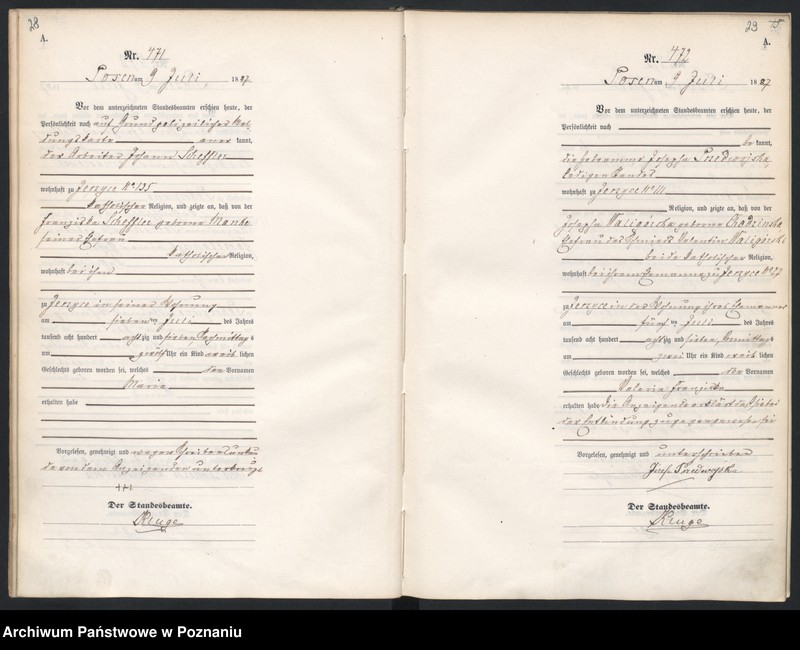 28
A.
Nr. 471
Posen am 9 Juli 1887
Vor dem unterzeichneten Standesbeamten erschien heute, der
Persönlichkeit nach auf Grund polizeilicher Mel-
dungskarte aner kannt,
der Arbeiter Johann Scheffler
wohnhaft zu Jerzyce No 135
katholischer Religion, und zeigte an, daß von der
Franziska Scheffler geborene
seiner Ehefrau
katholischer Religion,
wohnhaft bei ihm
zu Jerzyce in seiner Wohnung
am sieben ten Juli des Jahres
tausend acht hundert achtzig und sieben, Nachmittags
um zwölf Uhr ein Kind weib lichen
Geschlechts geboren worden sei, welches den Vornamen
Maria
erhalten habe
Vorgelesen, genehmigt und wegen Schreibensunkun-
de von dem Anzeigenden unterkreuzt
+++
Der Standesbeamte.
Kluge
29
A.
Nr. 472
Posen am 9 Juli 1887
Vor dem unterzeichneten Standesbeamten erschien heute, der
Persönlichkeit nach
be kannt,
die Hebamme Josepha
ledigen Standes
wohnhaft zu Jerzyce No 111
Religion, und zeigte an, daß von der
Josepha Waligórska geborene
Ehefrau des Schmieds Valentin Waligórski
beide katholischer Religion,
wohnhaft bei ihrem Ehemanne zu Jerzyce No
zu Jerzyce in der Wohnung ihres Ehemannes
am fünf ten Juli des Jahres
tausend acht hundert achtzig und sieben, Vormittags
um zwei Uhr ein Kind weib lichen
Geschlechts geboren worden sei, welches den Vornamen
Valeria Franziska
erhalten habe Die Anzeigende erklärt daß sie bei
der Entbindung zugegen gewesen sei
Vorgelesen, genehmigt und unterschrieben
Der Standesbeamte.
Kluge
Archiwum Państwowe w Poznaniu